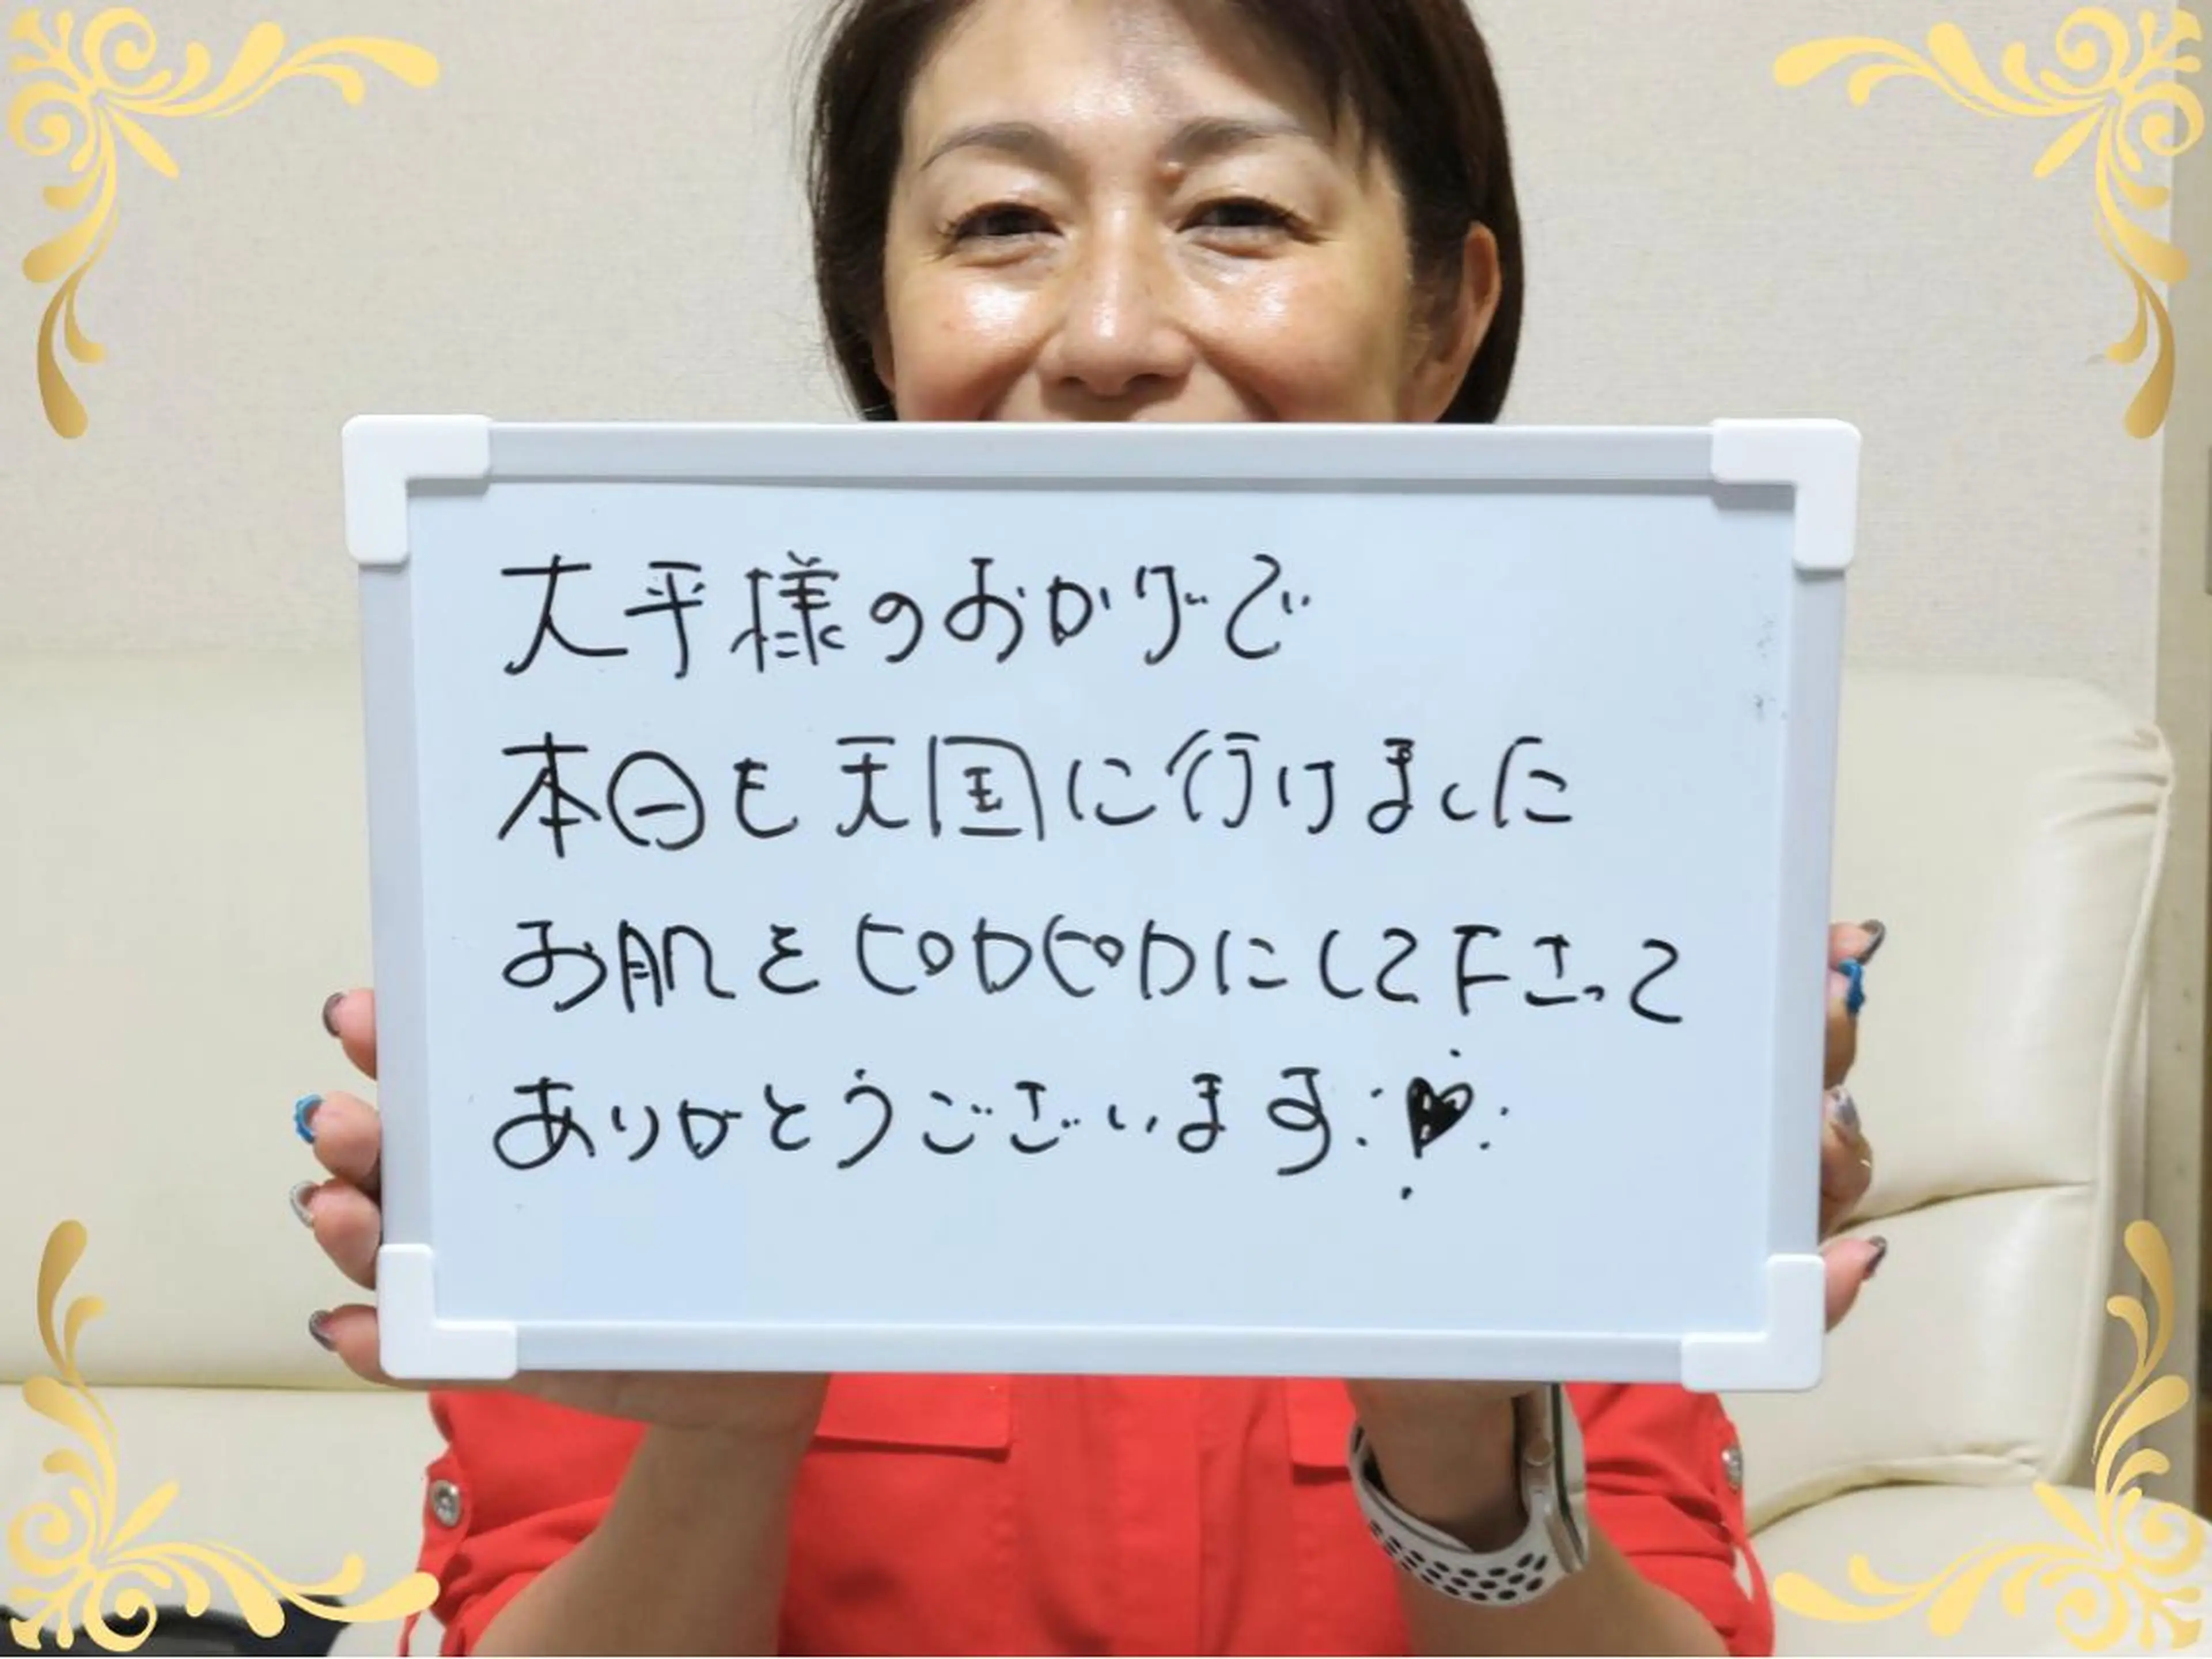 大平様のおかげで
本日も天国に行けました
お肌をピカピカにして下さって
ありがとうございます♥